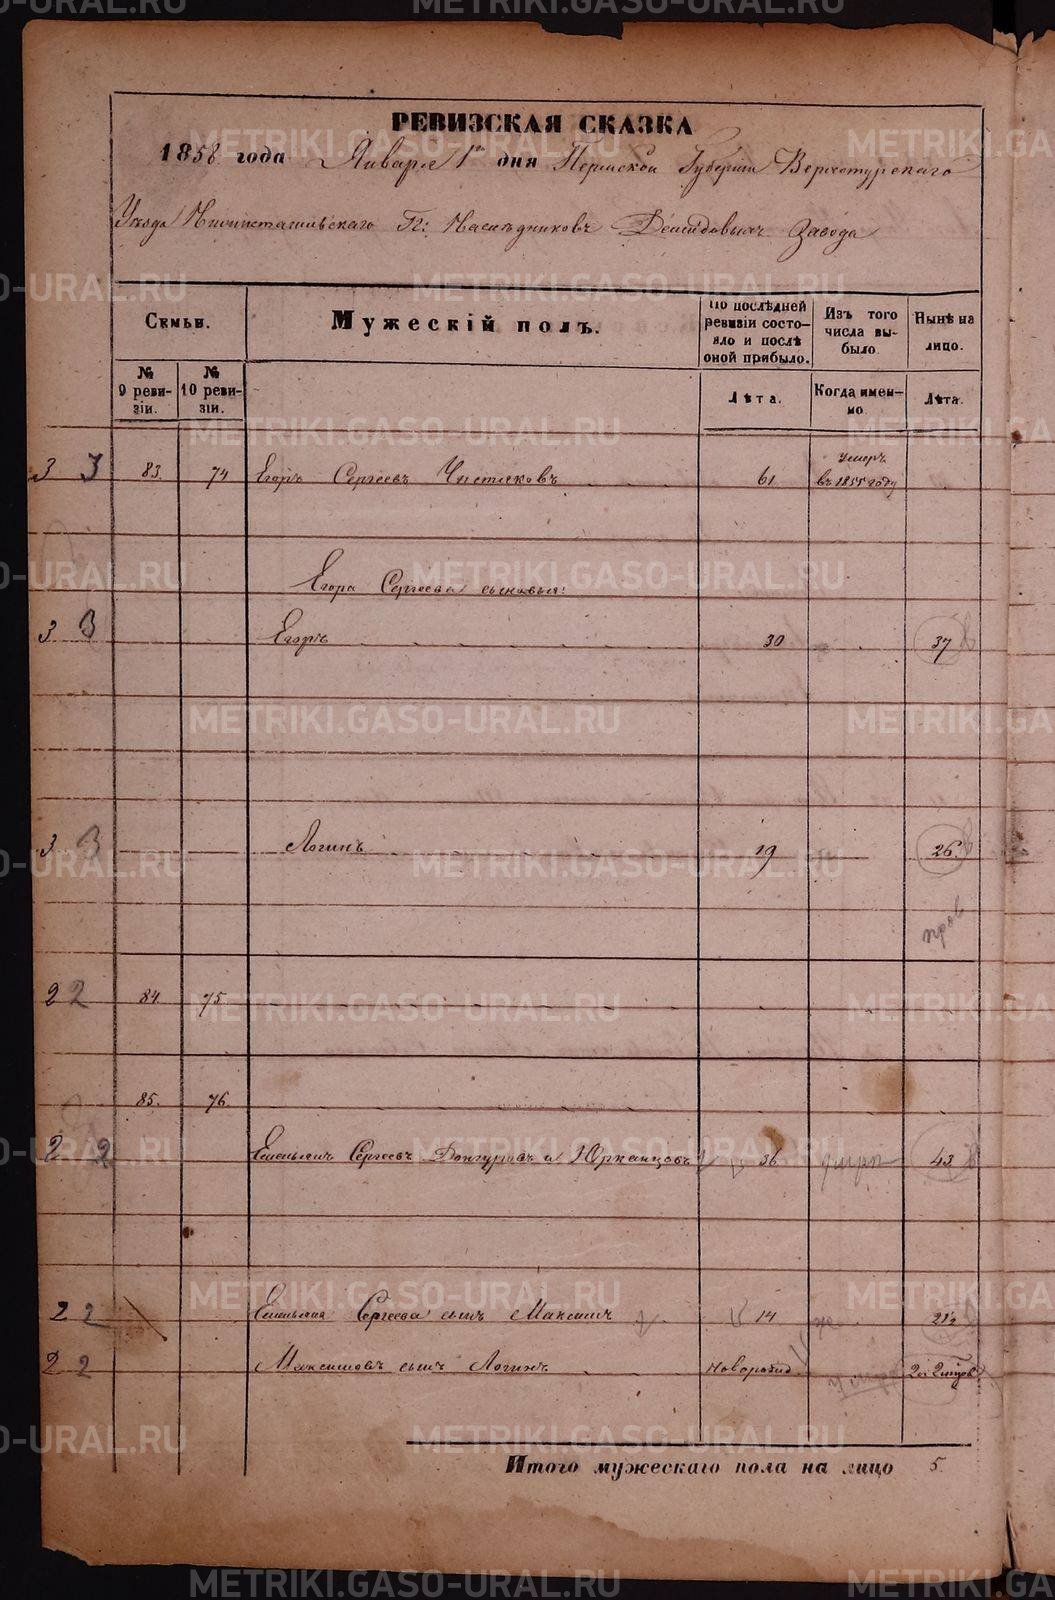 РЕВИЗСКАЯ СКАЗКА
1858 года Января 1го дня Пермской Губернии Верхотурскаго
Уезда Нижнетагильскаго Гг: Наследниковъ Демидовыхъ Завода
Семьи.
Мужескій полъ.
По послѣдней ревизіи состояло и послѣ оной прибыло.
Изъ того числа выбыло.
Нынѣ на лицо.
№ 9 ревизіи.
№ 10 ревизіи.
Лѣта.
Когда именно.
Лѣта.
3 3 83. 74 Егоръ Сергеевъ Чистяковъ 61 умеръ въ 1855 году
Егора Сергеева сыновья:
3 3 Егоръ 30 37
3 3 Логинъ 19 26.
пров
2 2 84 75
85. 76.
2 2 Емельянъ Сергеевъ Донгуровъ и Юрканцовъ 36 43
2 2 Емельяна Сергеева сынъ Максимъ 14 21½
2 2 Максимовъ сынъ Логинъ новорожд.
Итого мужескаго пола на лицо 5.
METRIKI.GASO-URAL.RU